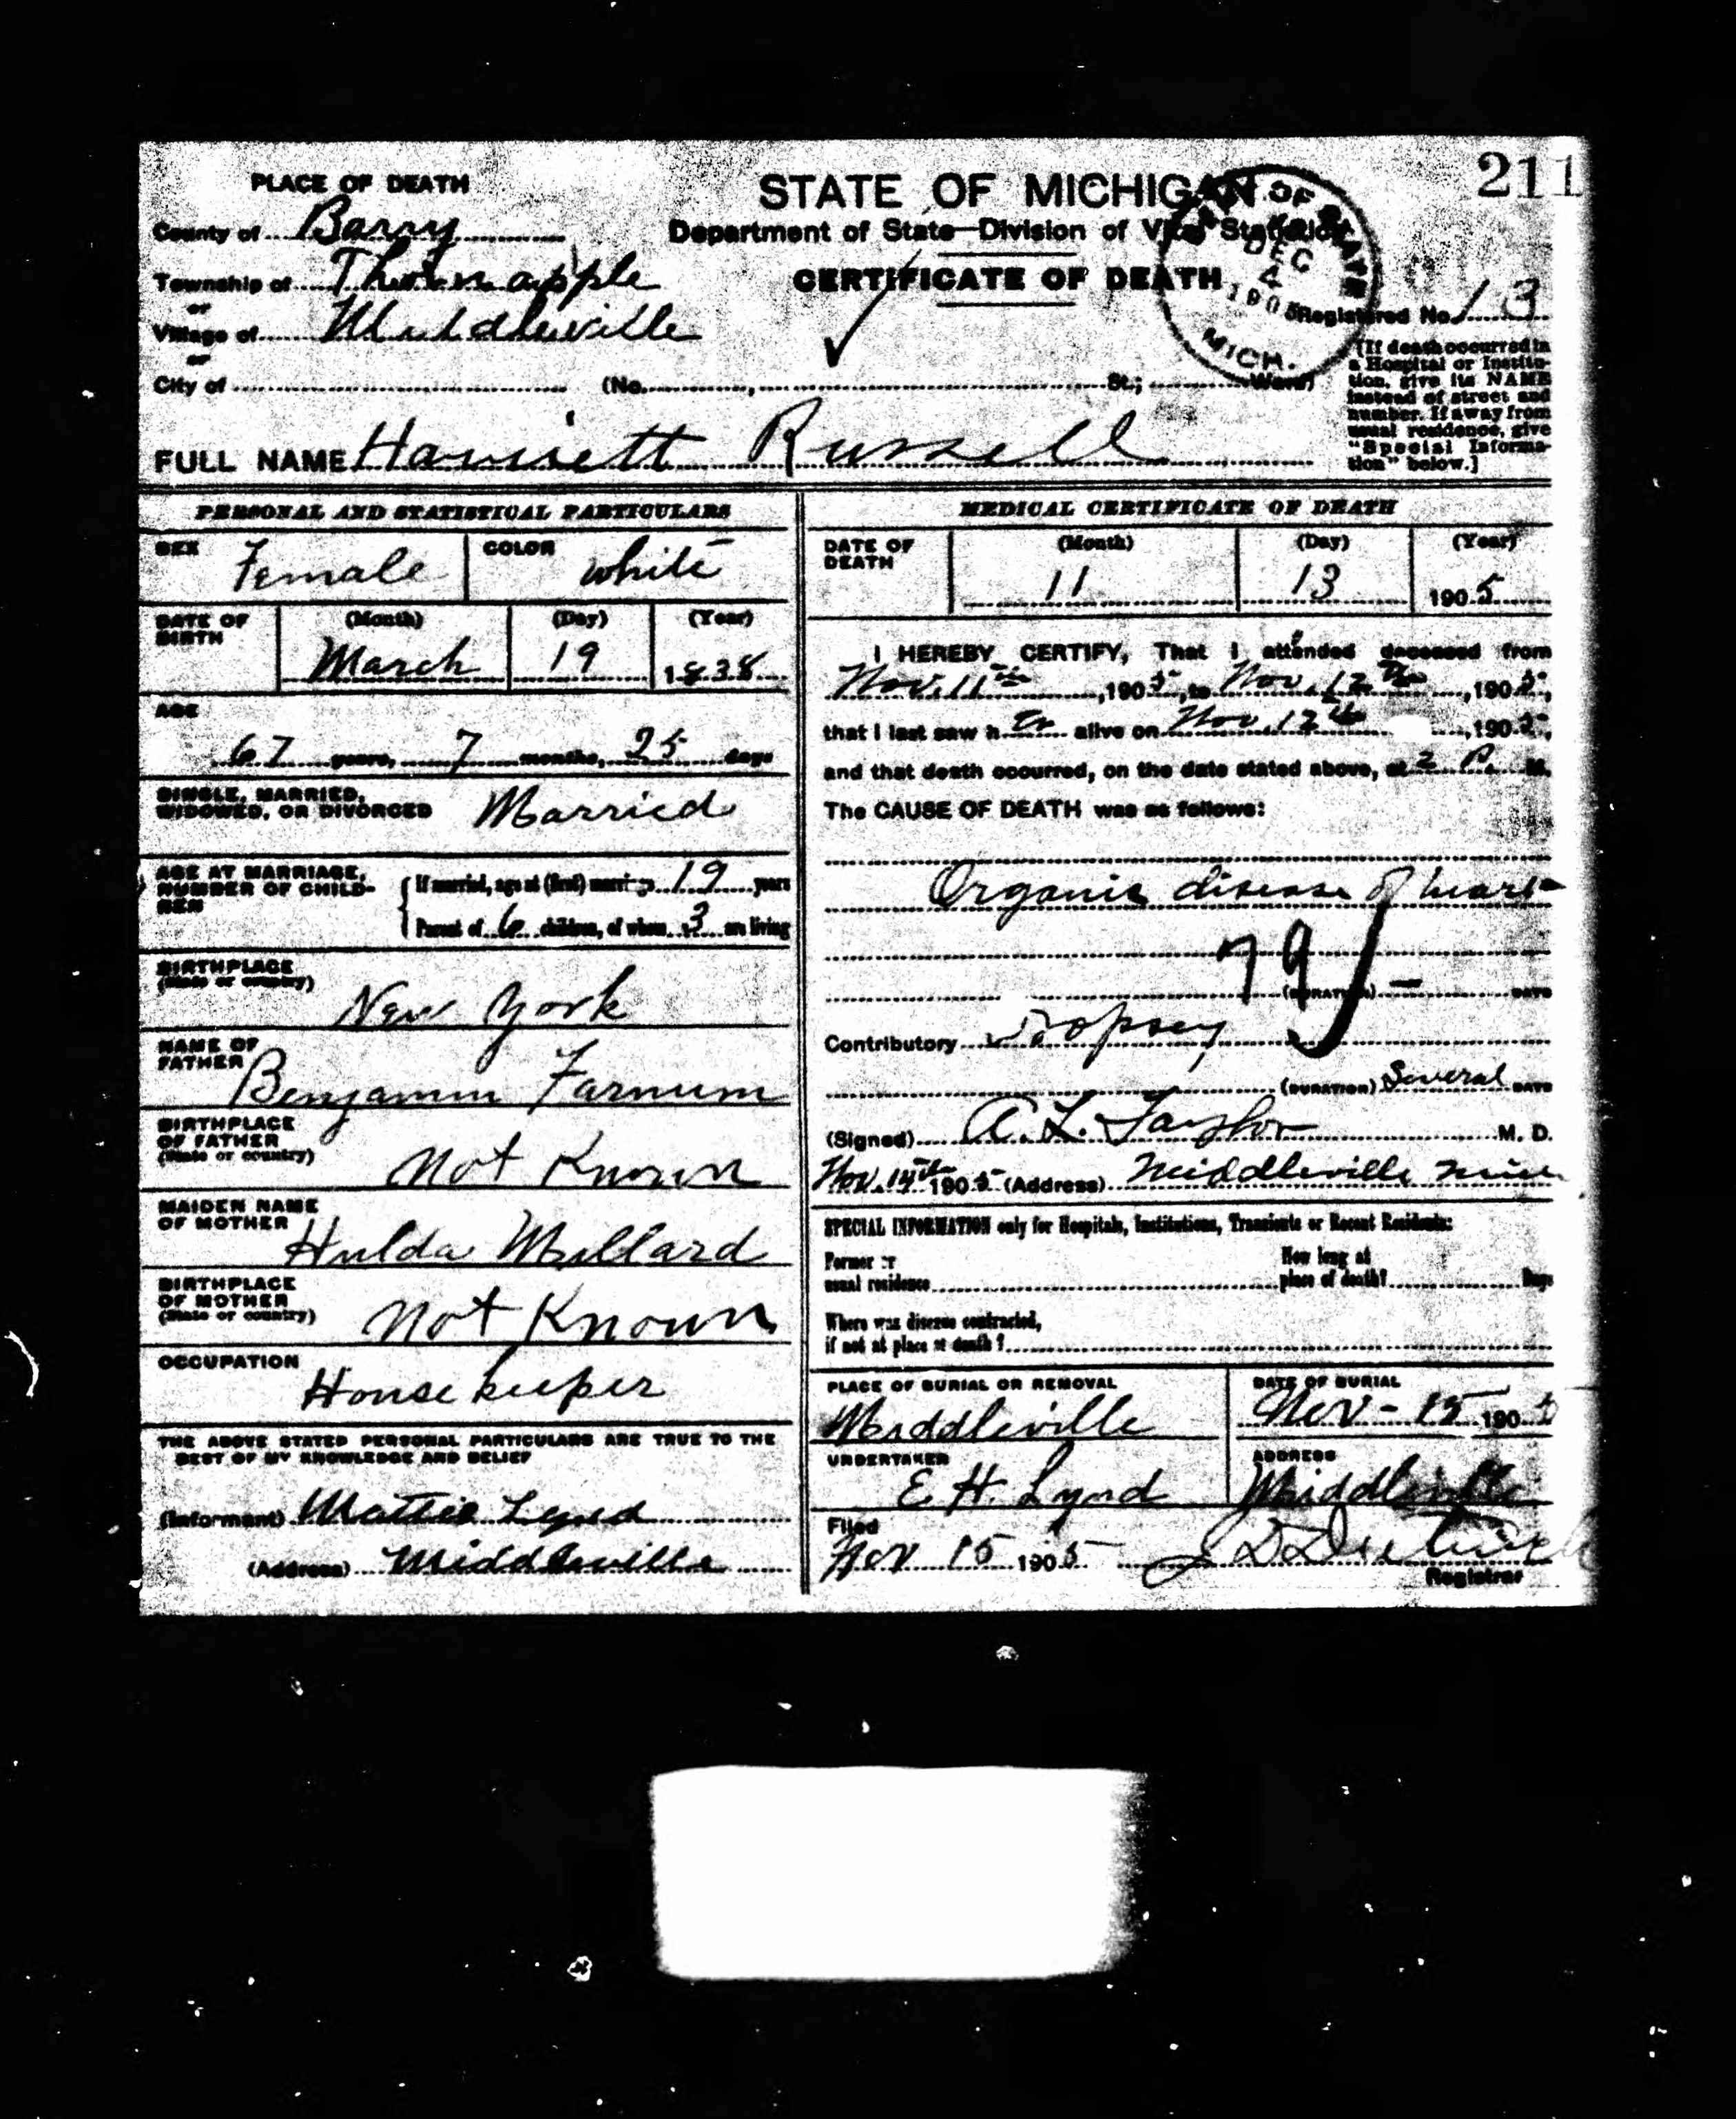 211
PLACE OF DEATH
County of Barry
Township of Thornapple
or
Village of Middleville
or
City of (No. , St.; Ward)
STATE OF MICHIGAN
Department of State—Division of Vital Statistics
CERTIFICATE OF DEATH
OF STATE
DEC
4
1905
MICH.
Registered No. 13
[If death occurred in
a Hospital or Institu-
tion, give its NAME
instead of street and
number. If away from
usual residence, give
"Special Informa-
tion" below.]
FULL NAME Harriett Russell
PERSONAL AND STATISTICAL PARTICULARS
SEX Female COLOR white
DATE OF BIRTH (Month) March (Day) 19 (Year) 1838
AGE
67 years, 7 months, 25 days
SINGLE, MARRIED,
WIDOWED, OR DIVORCED Married
AGE AT MARRIAGE,
NUMBER OF CHILD-
REN
If married, age at (first) marriage 19 years
Parent of 6 children, of whom 3 are living
BIRTHPLACE
(State or country)
New York
NAME OF
FATHER
Benjamin Farnum
BIRTHPLACE
OF FATHER
(State or country)
Not Known
MAIDEN NAME
OF MOTHER
Hulda Millard
BIRTHPLACE
OF MOTHER
(State or country)
Not Known
OCCUPATION
Housekeeper
THE ABOVE STATED PERSONAL PARTICULARS ARE TRUE TO THE
BEST OF MY KNOWLEDGE AND BELIEF
(Informant) Mattie Lynd
(Address) Middleville
MEDICAL CERTIFICATE OF DEATH
DATE OF
DEATH
(Month) 11 (Day) 13 (Year) 1905
I HEREBY CERTIFY, That I attended deceased from
Nov. 11th, 1905, to Nov. 12th, 1905,
that I last saw h er alive on Nov. 12th, 1905,
and that death occurred, on the date stated above, at 2 P. M.
The CAUSE OF DEATH was as follows:
Organic disease of heart
79
(DURATION) DAYS
Contributory Dropsey
(DURATION) Several DAYS
(Signed) A. L. Taylor M. D.
Nov. 14th 1905 (Address) Middleville Mich
SPECIAL INFORMATION only for Hospitals, Institutions, Transients or Recent Residents:
Former or
usual residence
How long at
place of death? Days
Where was disease contracted,
if not at place of death?
PLACE OF BURIAL OR REMOVAL
Middleville
DATE OF BURIAL
Nov - 15 1905
UNDERTAKER
E. H. Lynd
ADDRESS
Middleville
Filed
Nov 15 1905
Registrar